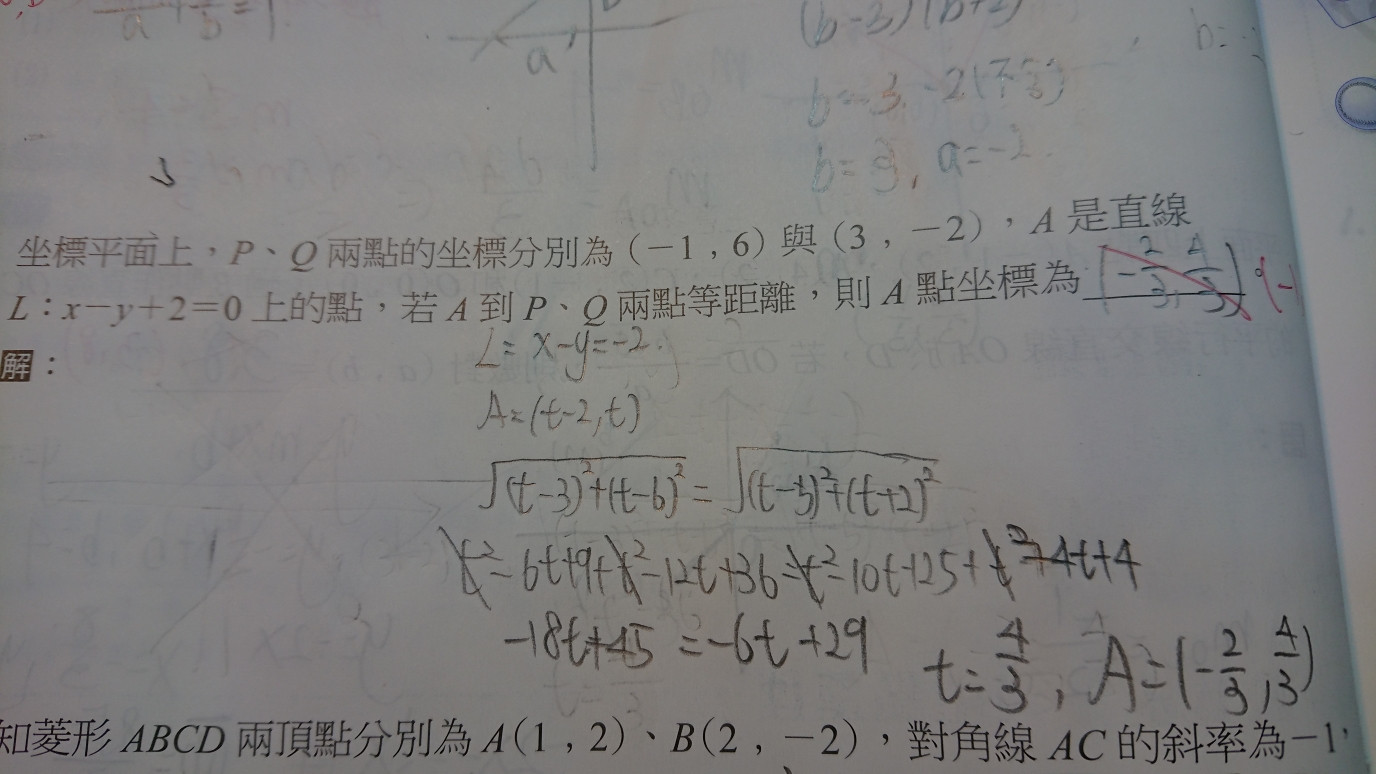 a
(b-3)(b+2)
b=
b=3, -2(不合)
b=3, a=-2
坐標平面上，P、Q 兩點的坐標分別為 (-1, 6) 與 (3, -2)，A 是直線
L：x-y+2=0 上的點，若 A 到 P、Q 兩點等距離，則 A 點坐標為 (-2/3, 4/3)
解：
L= x-y=-2.
A=(t-2, t)
√((t-3)²+(t-6)²) = √((t-5)²+(t+2)²)
t²-6t+9+t²-12t+36=t²-10t+25+t²+4t+4
-18t+45 =-6t+29
t=4/3, A=(-2/3, 4/3)
知菱形 ABCD 兩頂點分別為 A(1, 2)、B(2, -2)，對角線 AC 的斜率為-1，